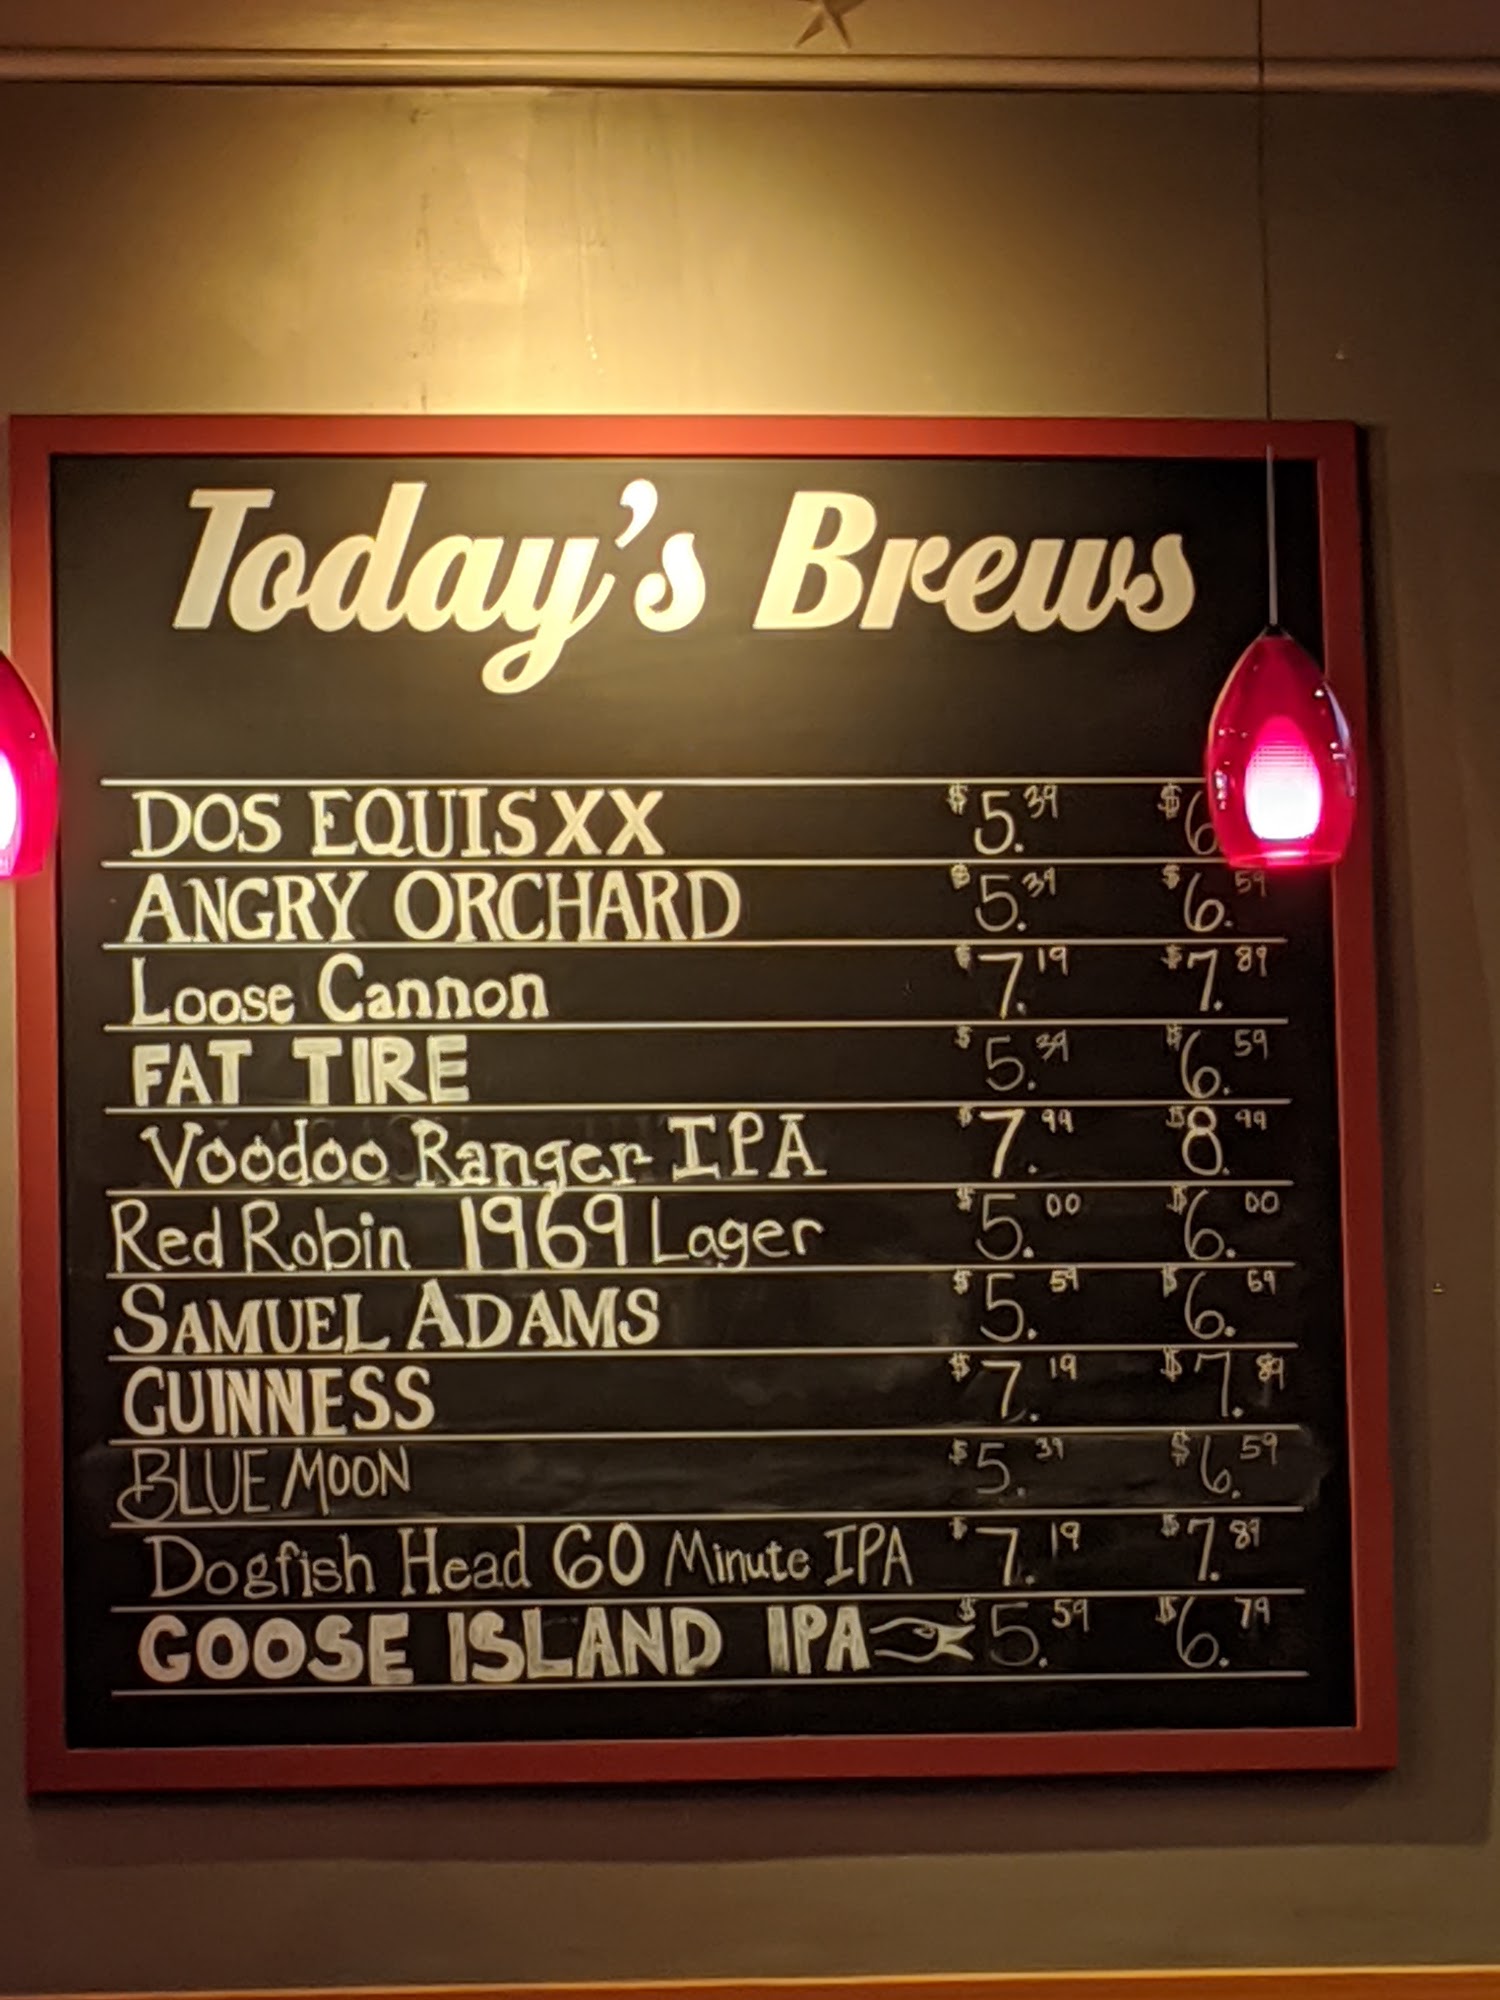 Today's Brews
DOS EQUIS XX $5.39 $6
ANGRY ORCHARD $5.39 $6.59
Loose Cannon $7.19 $7.89
FAT TIRE $5.39 $6.59
Voodoo Ranger IPA $7.99 $8.99
Red Robin 1969 Lager $5.00 $6.00
SAMUEL ADAMS $5.59 $6.69
GUINNESS $7.19 $7.89
BLUE MOON $5.39 $6.59
Dogfish Head 60 Minute IPA $7.19 $7.89
GOOSE ISLAND IPA $5.59 $6.79